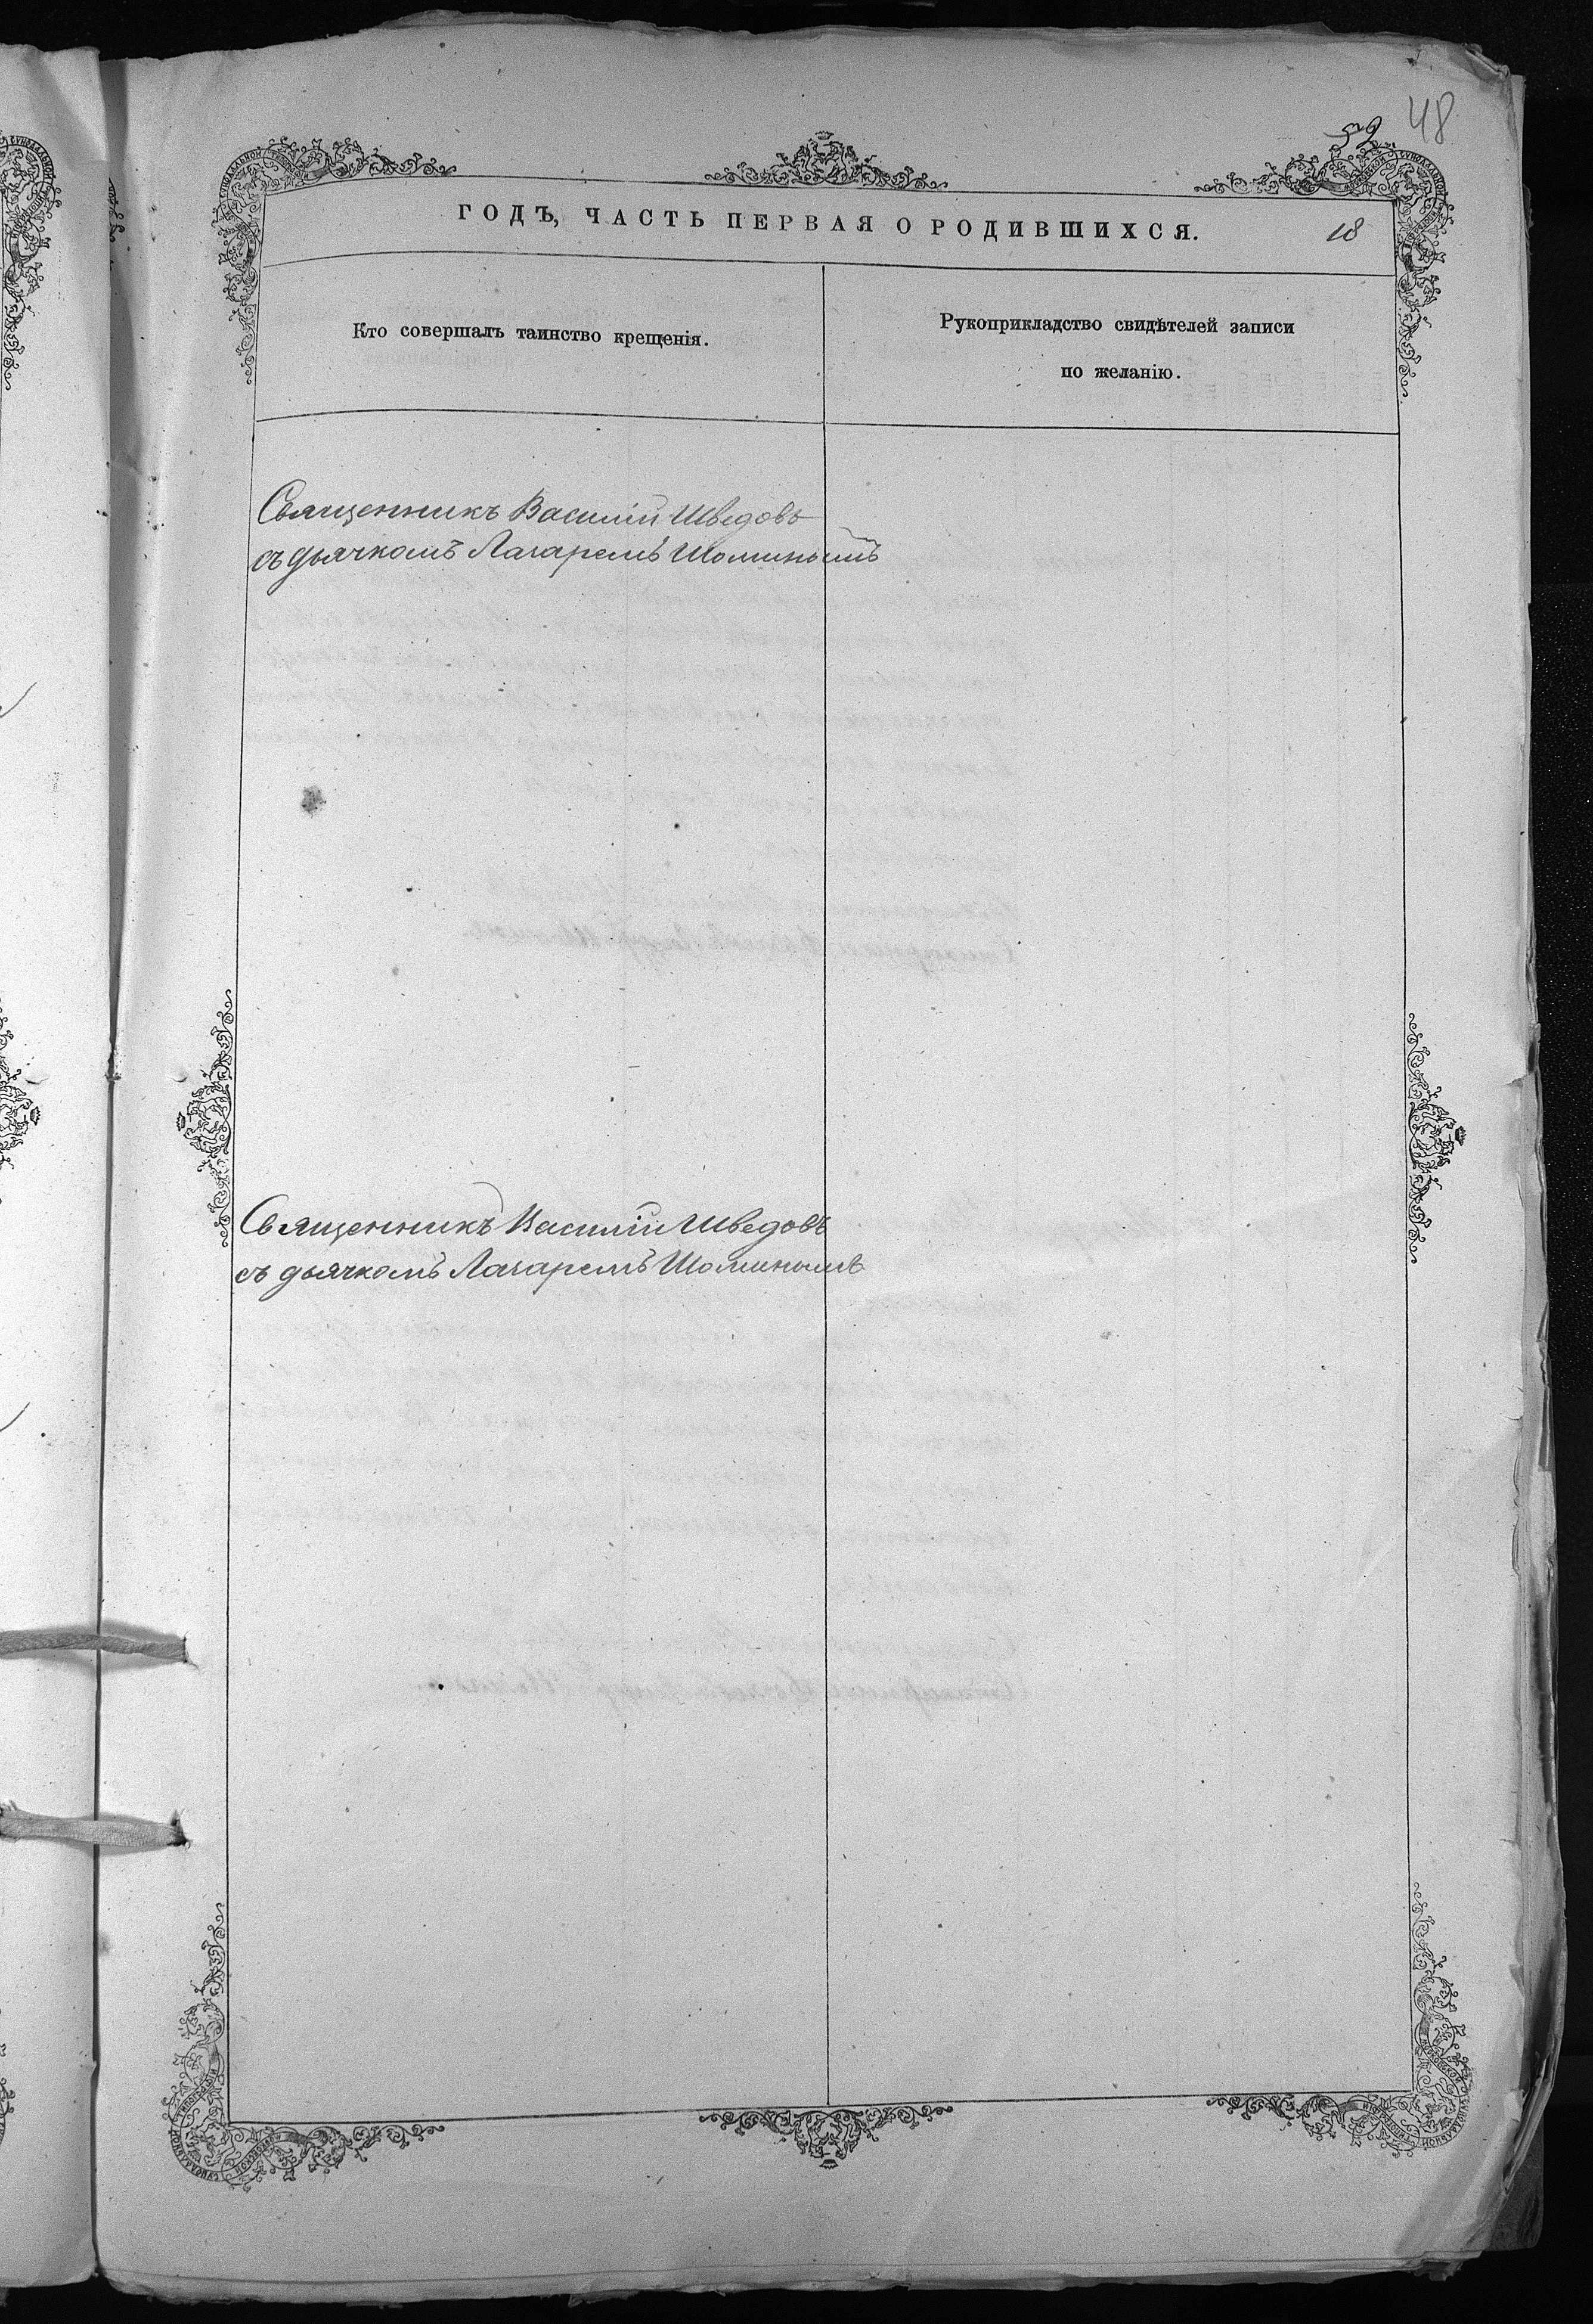 48
52
ГОДЪ, ЧАСТЬ ПЕРВАЯ О РОДИВШИХСЯ.
18
Кто совершалъ таинство крещенія.
Рукоприкладство свидѣтелей записи
по желанію.
Священникъ Василій Шведовъ
съ дьячкомъ Лазаремъ Шоминымъ
Священникъ Василій Шведовъ
съ дьячкомъ Лазаремъ Шоминымъ